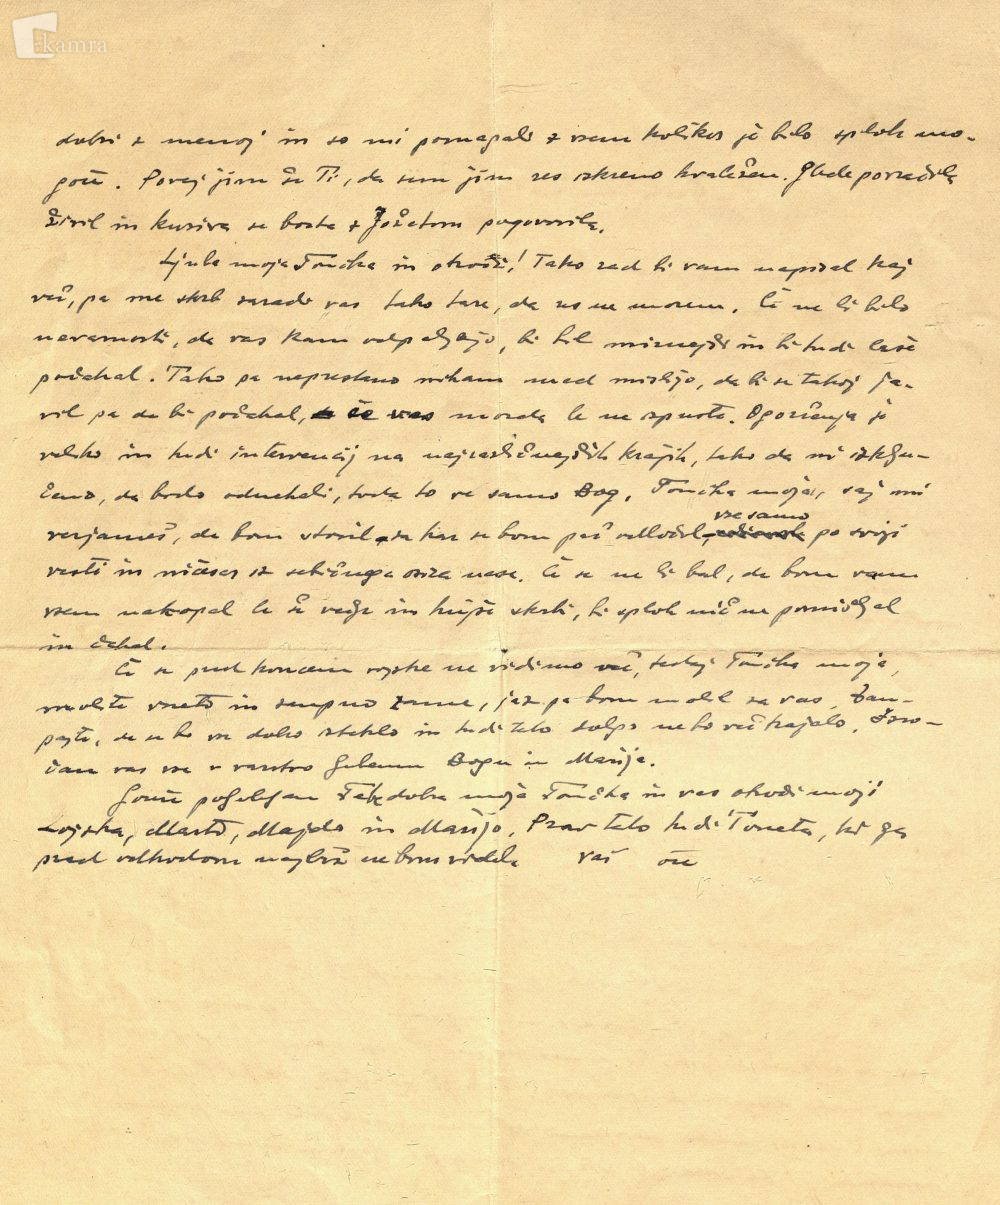 kamra
dobri z menoj in so mi pomagali z vsem kolikor je bilo sploh mo-
goče. Povej jim še Ti, da sem jim res iskreno hvaležen. Glede
živil in kuriva se bosta z Jožetom pogovorila.
Ljuba moja Tončka in otroci! Tako rad bi vam napisal kaj
več, pa me skrb zaradi vas tako tare, da res ne morem. Če ne bi bilo
nevarnosti, da vas kam odpeljejo, bi bil mirnejši in bi tudi lažje
počakal. Tako pa neprestano niham med mislijo, da bi se takoj ja-
vil pa da bi počakal, če vas morda le ne izpuste. Ogorčenja je
veliko in tudi intervencij na najrazličnejših krajih, tako da ni izklju-
čeno, da bodo odnehali, toda to ve samo Bog. Tončka moja, saj mi
verjameš, da bom storil, za kar se bom pač odločil, vse samo po svoji
vesti in ničesar iz sebičnega ozira nase. Če se ne bi bal, da bom vam
vsem nakopal le še večje in hujše skrbi, bi sploh nič ne pomišljal
in čakal.
Če se pred koncem vojske ne vidimo več, tedaj Tončka moja,
molite vneto in zaupno zame, jaz pa bom molil za vas. Zau-
pajte, da se bo vse dobro izteklo in tudi to dolgo ne bo več trajalo. Izro-
čam vas vse v varstvo ljubemu Bogu in Mariji.
Goreče poljubljam Tebe dobra moja Tončka in vas otroci moji
Lojzka, Marto, Majdo in Marijo. Prav tako tudi Toneta, ki ga
pred odhodom najbrž ne bom videl. Vaš oče